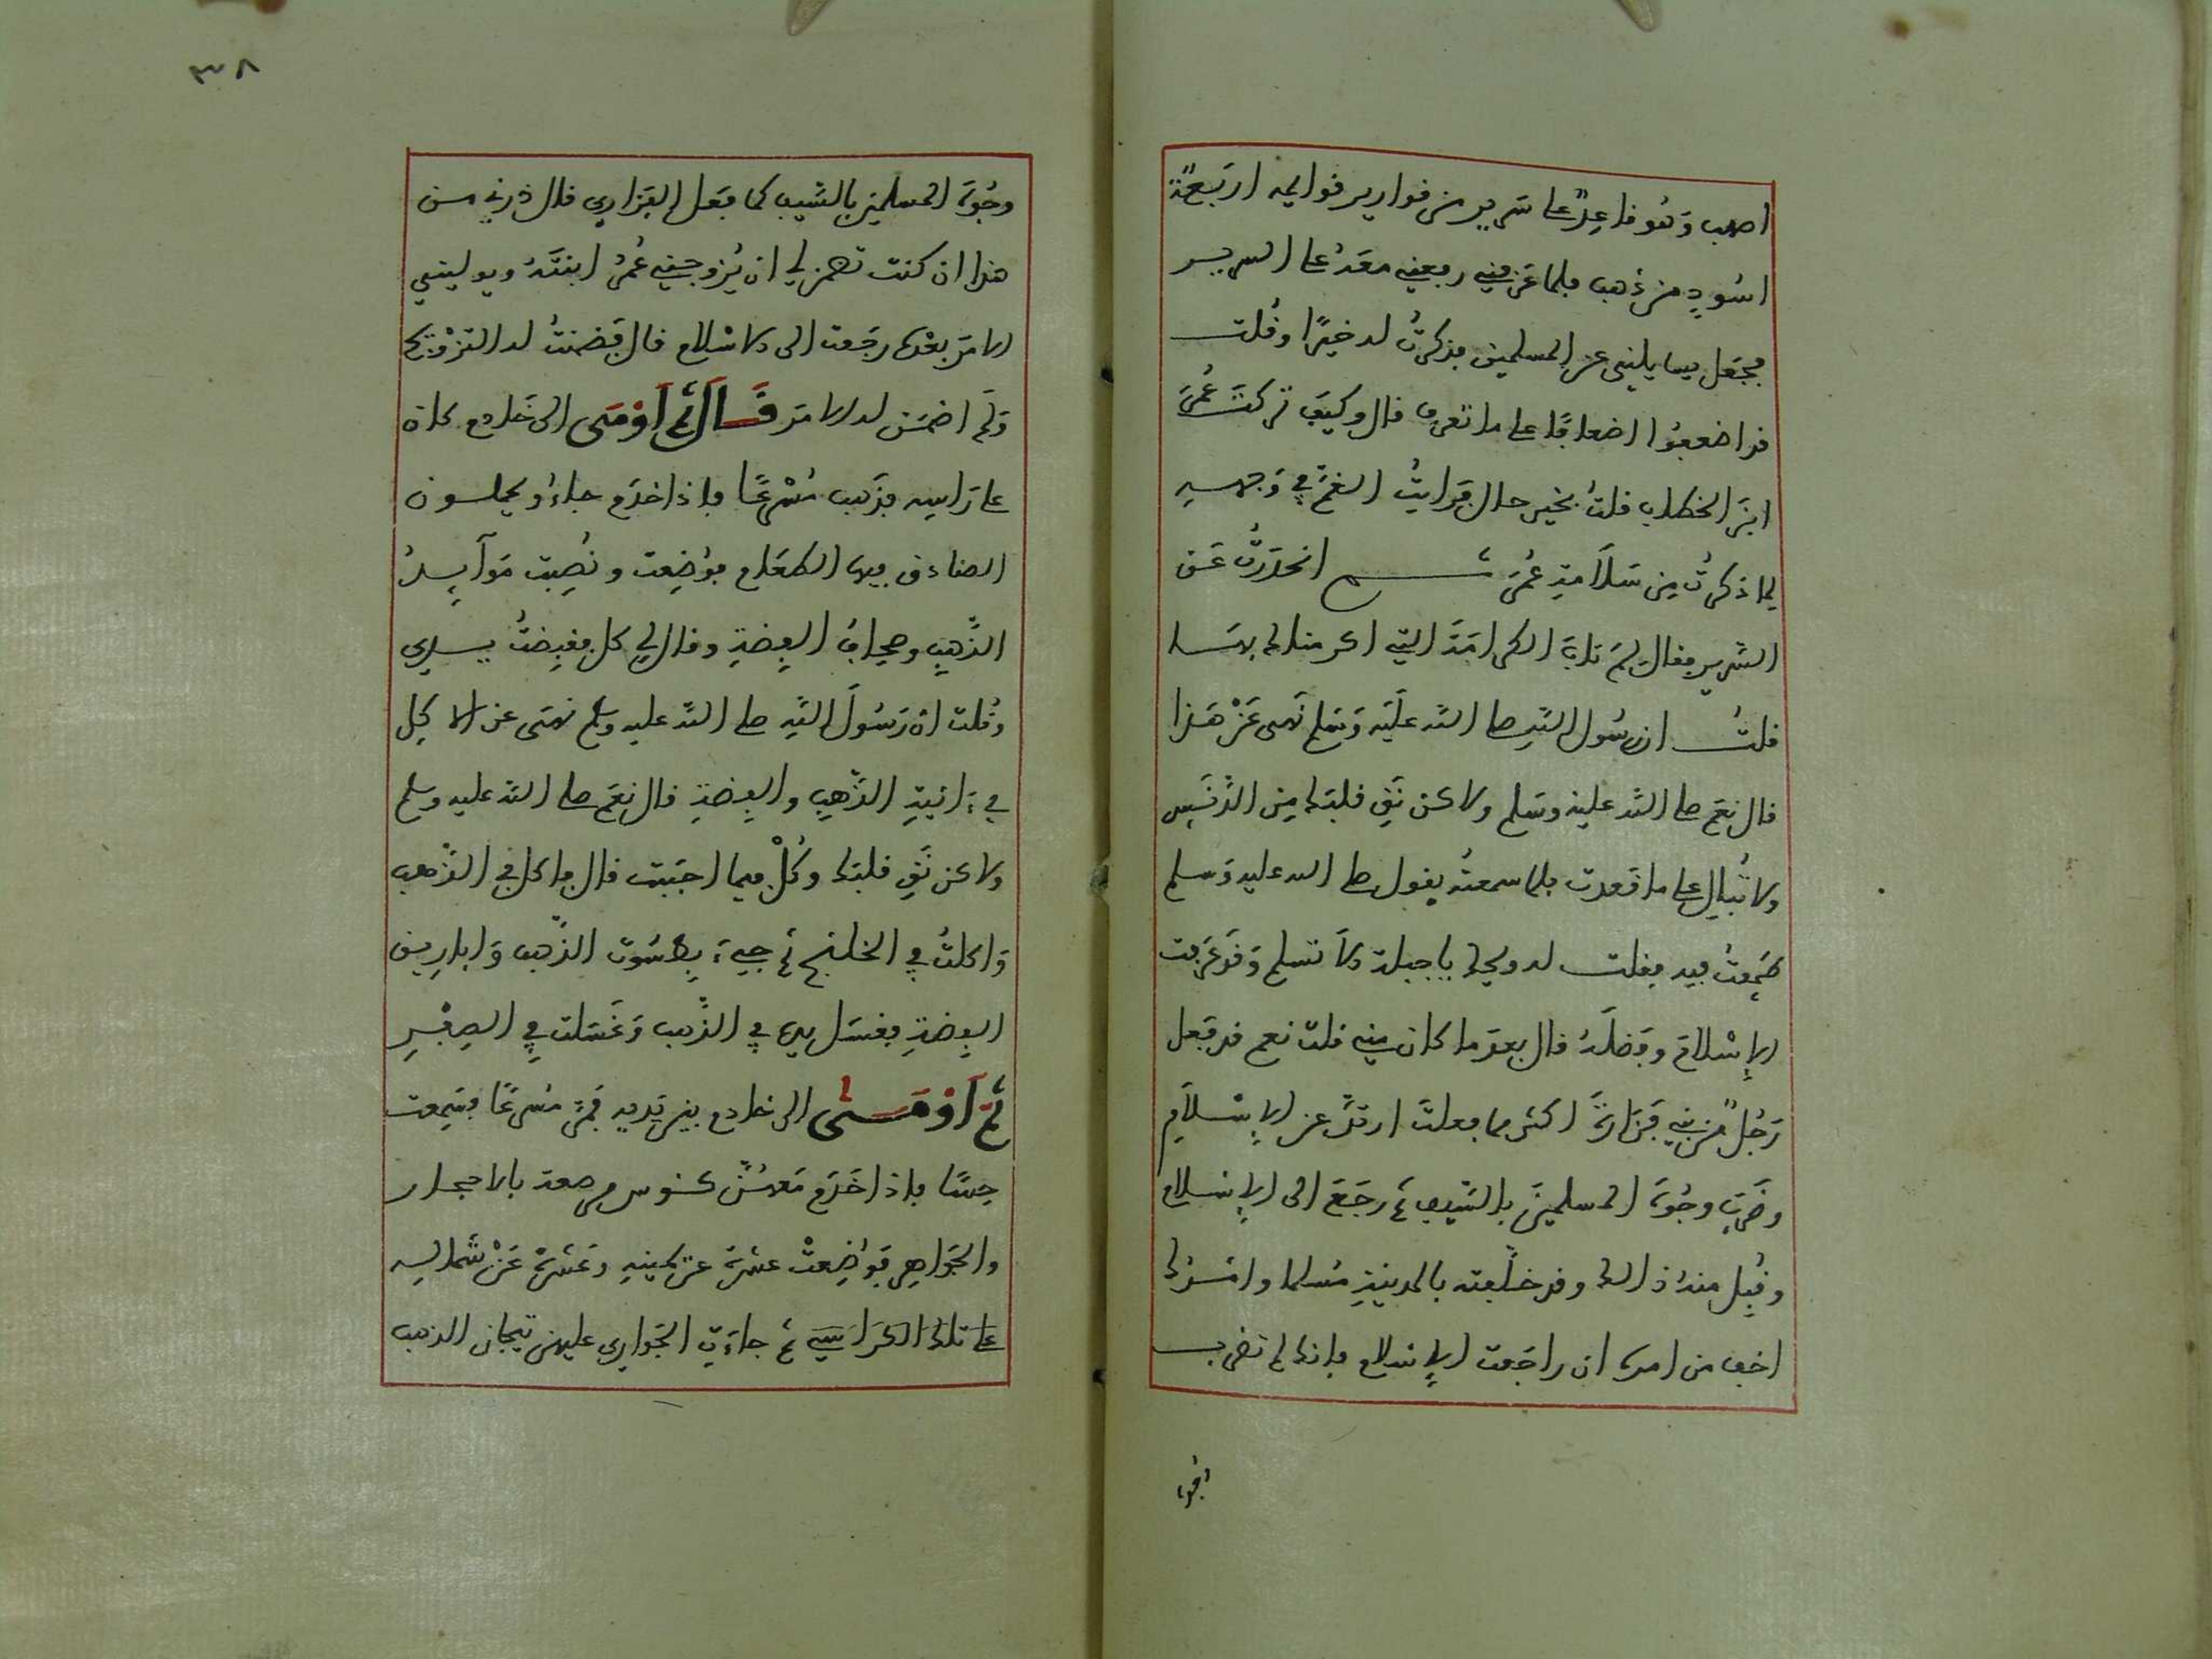 اصهب وَهُو قاعِدٌ على سَرِيرٍ من قوارير قوائمه اربَعةُ
اسُودٍ من ذهب فلما عَرفني رفعني معَهُ على السرير
فجعَل يسايلني عن المسلمين فذكرتُ له خيرًا وقُلت
قد اضعفوا اضعافًا على ما تعرف قال وكيفَ تركت عُمَرَ
ابنَ الخطاب قلتُ بخير حال فرَايتُ الغمَّ في وَجهه
لِما ذكرتُ مِن سَلاَمةِ عُمَرَ ثم انحدَرتُ عَن
السَّرير فقال لِمَ تابَى الكرامَةَ التي اكرمناك بهَا
قلتُ ان رسُول اللهِ صلى الله علَيه وَسَلم نَهى عَنْ هَذا
قال نعَم صلى الله عليه وسَلم ولاكن نَقِّ قلبَك مِن الدَّنَسِ
ولا تُبالِ على ما قعدت فلما سمعتُه يقول صلى الله عليه وَسلم
طَمِعتُ فيه فقلت له ويحك يا جبلة ألاَ تسلم وَقَد عَرَفت
الإِسْلامَ وفَضلَهُ قال بعدَ ما كان مني قلت نعم قد فَعل
رَجُلٌ من بني فَزَارةَ اكثر مما فعلتَ ارتدَّ عن الإِسْلاَمِ
وضَرَبَ وجُوهَ المسلمينَ بالسَّيف ثم رجَعَ الى الإِسلام
وقُبِل مِنهُ ذالك وقد خلّفته بالمدينةِ مُسلما وامْرُك
اخف من امره ان راجَعت الإِسلام فإنك لم تضرب
وجُوه
٣٨
وجُوهَ المسلمين بالسَّيف كما فعَل الفزاري قال ذرني من
هذا ان كنت تضمن لي ان يُزوجني عُمرُ ابنتَهُ ويوليني
الامرَ بعْده رجَعت الى الاسْلام قال فَضمنتُ له التزْويج
وَلم اضمَن له الامرَ قَالَ ثم اَوْمَى الى خَادم كان
على رَاسه فذَهب مُسْرعًا فإذا خدَم جاءُو يحملون
الصنادق فيها الطعَام فوُضِعت ونُصِبت مَوَآيِدُ
الذَّهبِ وصحافُ الفِضةِ وقال لي كل فقبضتُ يدي
وقُلت ان رَسُولَ اللهِ صلى الله عليه وسلم نهَى عن الاكل
في ءَانيةِ الذَّهبِ والفِضةِ قال نعَم صلى الله عليه وسلم
ولاكن نَقِّ قلبَك وكُلْ فيما احبَبت قال فاكل في الذَّهب
وَاكلتُ في الخلنج ثم جيءَ بِطسُوت الذّهب وَاباريق
الفِضةِ فغسَل يده في الذّهب وَغَسَلت في الصِفْرِ
ثمَّ اَوْمَى الى خادم بين يَديه فمَرَّ مُسرعًا فسَمِعت
حِسًّا فإذا خَدَم مَعهُنَّ كنوس مرصعة بالاحجار
والجَوَاهِر فوُضِعتْ عشرة عن يمينهِ وَعَشرة عَنْ شماله
على تلك الكرَاسي ثم جاءَت الجوَاري عليهن تيجان الذهب